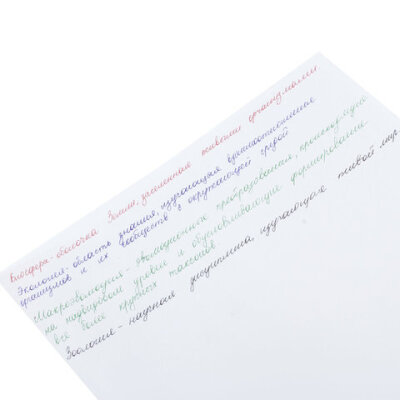 Биосфера - оболочка Земли, заселенная живыми организмами
Экология - область знания, изучающая взаимоотношения
организмов и их сообществ с окружающей средой
Макроэволюция - эволюционные преобразования, происходящие
на надвидовом уровне и обусловливающие формирование
все более крупных таксонов.
Зоология - научная дисциплина, изучающая живой мир